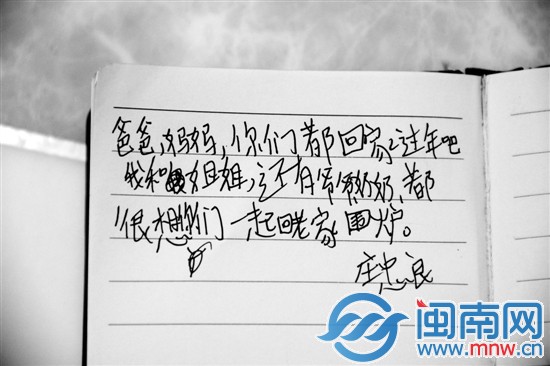 爸爸,妈妈,你们都回家过年吧
我和姐姐,还有爷爷奶奶,都
很想你们一起回老家围炉。
庄忠良
闽南网
www.mnw.cn